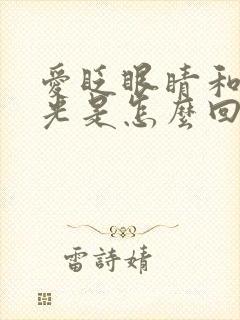 愛眨眼睛和
光是怎麼回
雷詩婧